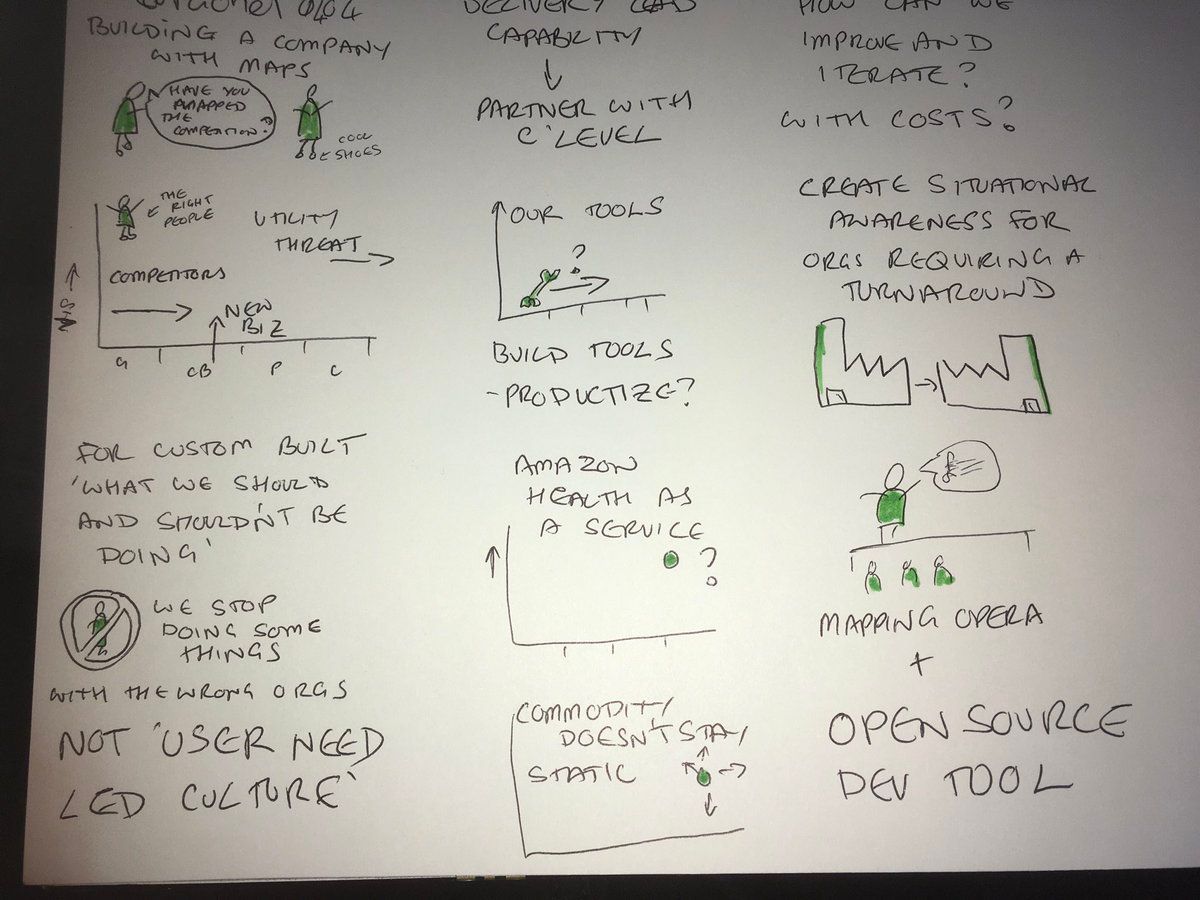 BUILDING A COMPANY
WITH MAPS
HAVE YOU
MAPPED
THE
COMPETITION?
COOL
SHOES
THE
RIGHT
PEOPLE
UTILITY
THREAT
COMPETITORS
NEW
BIZ
G
CB
P
C
FOR CUSTOM BUILT
'WHAT WE SHOULD
AND SHOULDN'T BE
DOING'
WE STOP
DOING SOME
THINGS
WITH THE WRONG ORGS
NOT 'USER NEED
LED CULTURE'
DELIVERY LEAD
CAPABILITY
PARTNER WITH
C' LEVEL
OUR TOOLS
?
BUILD TOOLS
- PRODUCTIZE?
AMAZON
HEALTH AS
A SERVICE
?
COMMODITY
DOESN'T STAY
STATIC
HOW CAN WE
IMPROVE AND
ITERATE?
WITH COSTS?
CREATE SITUATIONAL
AWARENESS FOR
ORGS REQUIRING A
TURNAROUND
MAPPING OPERA
+
OPEN SOURCE
DEV TOOL